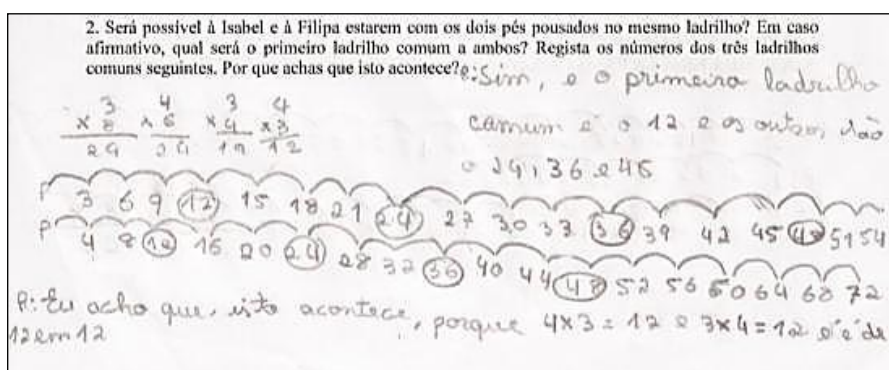 2. Será possível à Isabel e à Filipa estarem com os dois pés pousados no mesmo ladrilho? Em caso
afirmativo, qual será o primeiro ladrilho comum a ambos? Regista os números dos três ladrilhos
comuns seguintes. Por que achas que isto acontece?
R: Sim, e o primeiro ladrilho
comum é o 12 e os outros são
o 24, 36 e 48
3 4 3 4
x 8 x 6 x 4 x 3
24 24 12 12
F 3 6 9 12 15 18 21 24 27 30 33 36 39 42 45 48 51 54
P 4 8 12 16 20 24 28 32 36 40 44 48 52 56 60 64 68 72
R: Eu acho que isto acontece, porque 4x3=12 e 3x4=12 e é de
12 em 12